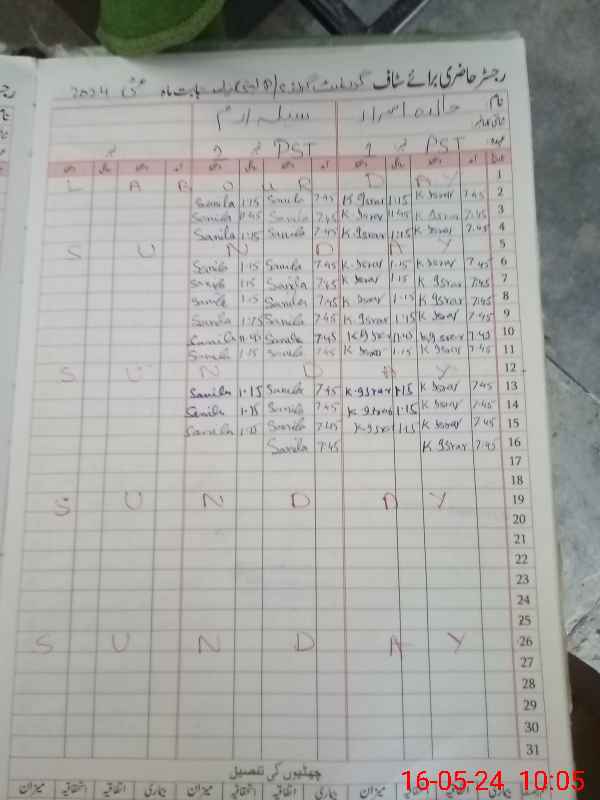 رجسٹر حاضری برائے سٹاف بابت ماہ مئی 2024
نام
نمبر 2 PST نمبر 1 PST عہدہ
1 L A B O U R D A Y
2 Sanila 1.15 Sanila 7.45 K Israr 1.15 K Israr 7.45
3 Sanila 11.45 Sanila 7.45 K Israr 11.45 K Israr 7.45
4 Sanila 1.15 Sanila 7.45 K Israr 1.15 K Israr 7.45
5 S U N D A Y
6 Sanila 1.15 Sanila 7.45 K Israr 1.15 K Israr 7.45
7 Sanila 1.15 Sanila 7.45 K Israr 1.15 K Israr 7.45
8 Sanila 1.15 Sanila 7.45 K Israr 1.15 K Israr 7.45
9 Sanila 1.15 Sanila 7.45 K Israr 1.15 K Israr 7.45
10 Sanila 11.45 Sanila 7.45 K Israr 11.45 K Israr 7.45
11 Sanila 1.15 Sanila 7.45 K Israr 1.15 K Israr 7.45
12 S U N D A Y
13 Sanila 1.15 Sanila 7.45 K Israr 1.15 K Israr 7.45
14 Sanila 1.15 Sanila 7.45 K Israr 1.15 K Israr 7.45
15 Sanila 1.15 Sanila 7.45 K Israr 1.15 K Israr 7.45
16 Sanila 7.45 K Israr 7.45
17
18
19 S U N D A Y
20
21
22
23
24
25
26 S U N D A Y
27
28
29
30
31
چھٹیوں کی تفصیل
بیماری اتفاقیہ میزان بیماری اتفاقیہ میزان بیماری اتفاقیہ استحقاقیہ میزان
16-05-24 10:05